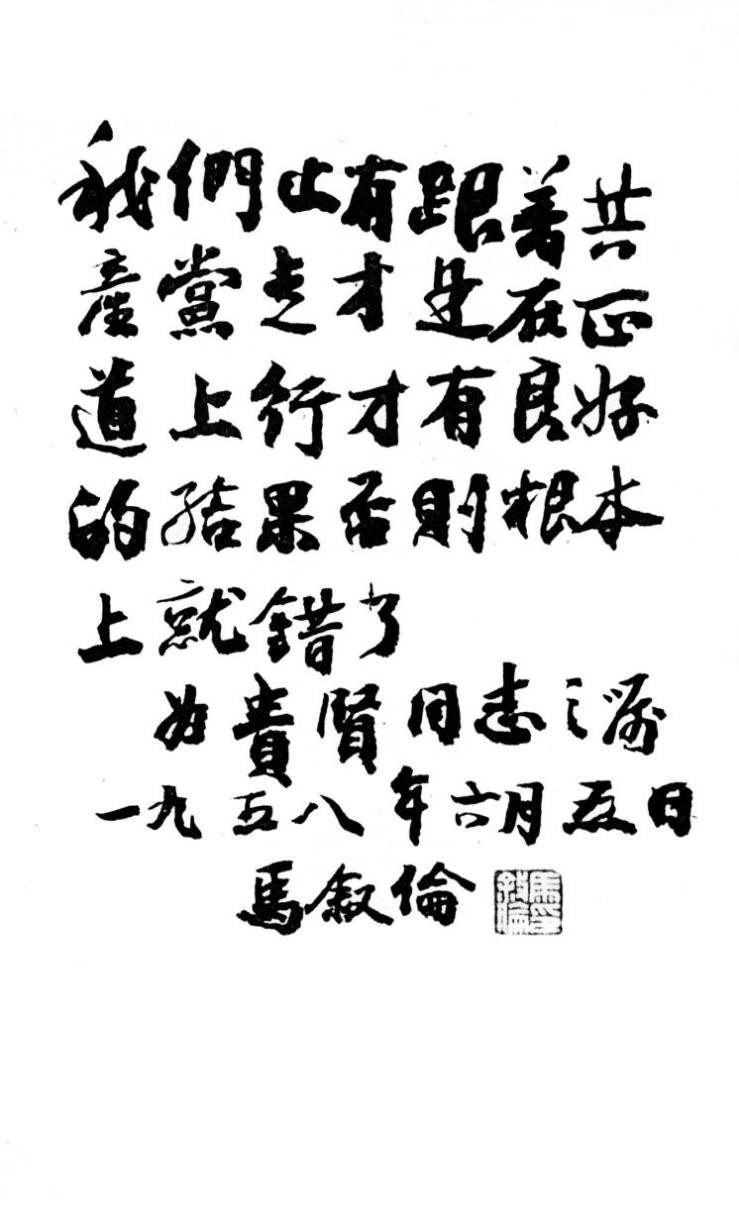 我們止有跟着共
產黨走才是在正
道上行才有良好
的結果否則根本
上就錯了
為貴賢同志之嘱
一九五八年六月五日
馬叙倫